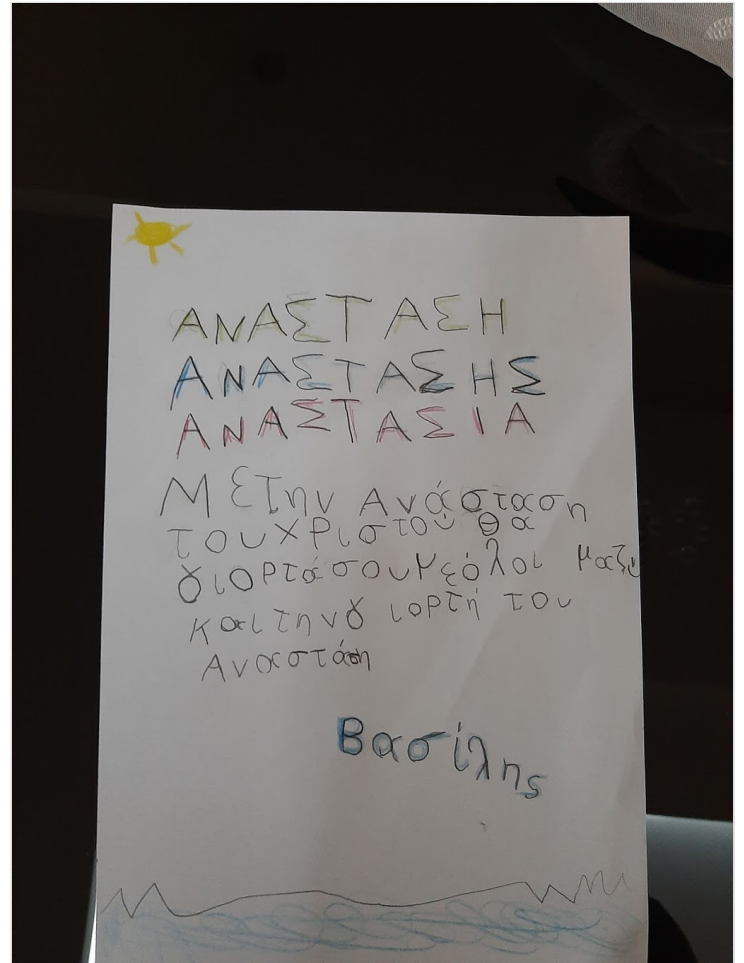 ΑΝΑΣΤΑΣΗ
ΑΝΑΣΤΑΣΗΣ
ΑΝΑΣΤΑΣΙΑ
Με την Ανάσταση
του Χριστού θα
γιορτάσουμε όλοι μαζί
και την γιορτή του
Αναστάση
Βασίλης